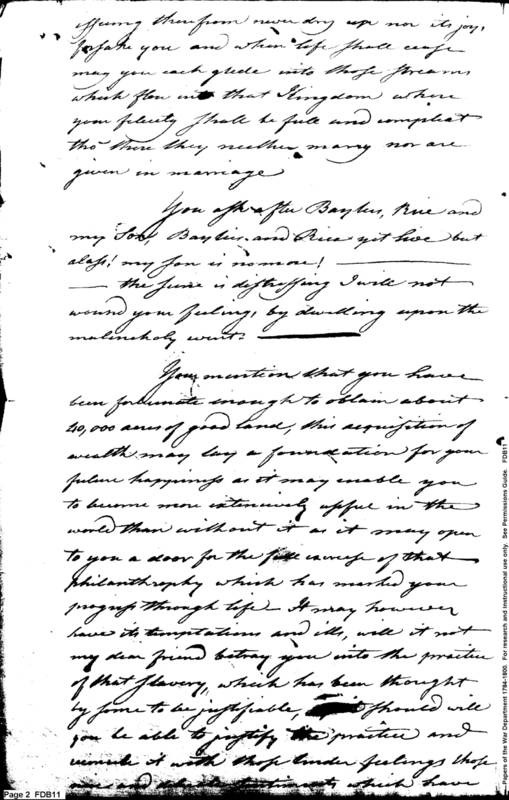 issuing therefrom never dry up nor its joys,
forsake you and when life shall cease
may you each glide into those streams
which flow into that Kingdom where
your felicity shall be full and compleat
tho' there they neither marry nor are
given in marriage
You ask after Baylies, Rice and
my Son, Baylies and Rice yet live but
alass! my son is no more!
the scene is distressing I will not
wound your feelings, by dwelling upon the
melancholy event.
You mention that you have
been fortunate enough to obtain about
40,000 acres of good land, this acquisition of
wealth may lay a foundation for your
future happiness as it may enable you
to become more extensively useful in the
world than without it as it may open
to you a door for the full increase of that
philanthrophy which has marked your
progress through life. It may however
have its temptations and ills, will it not
my dear friend betray you into the practice
of that slavery, which has been thought
by some to be justifiable, should will
you be able to justify the practice and
reconcile it with those tender feelings those
which have
Page 2 FDB11
Papers of the War Department 1784-1800. For research and instructional use only. See Permissions Guide. FDB11